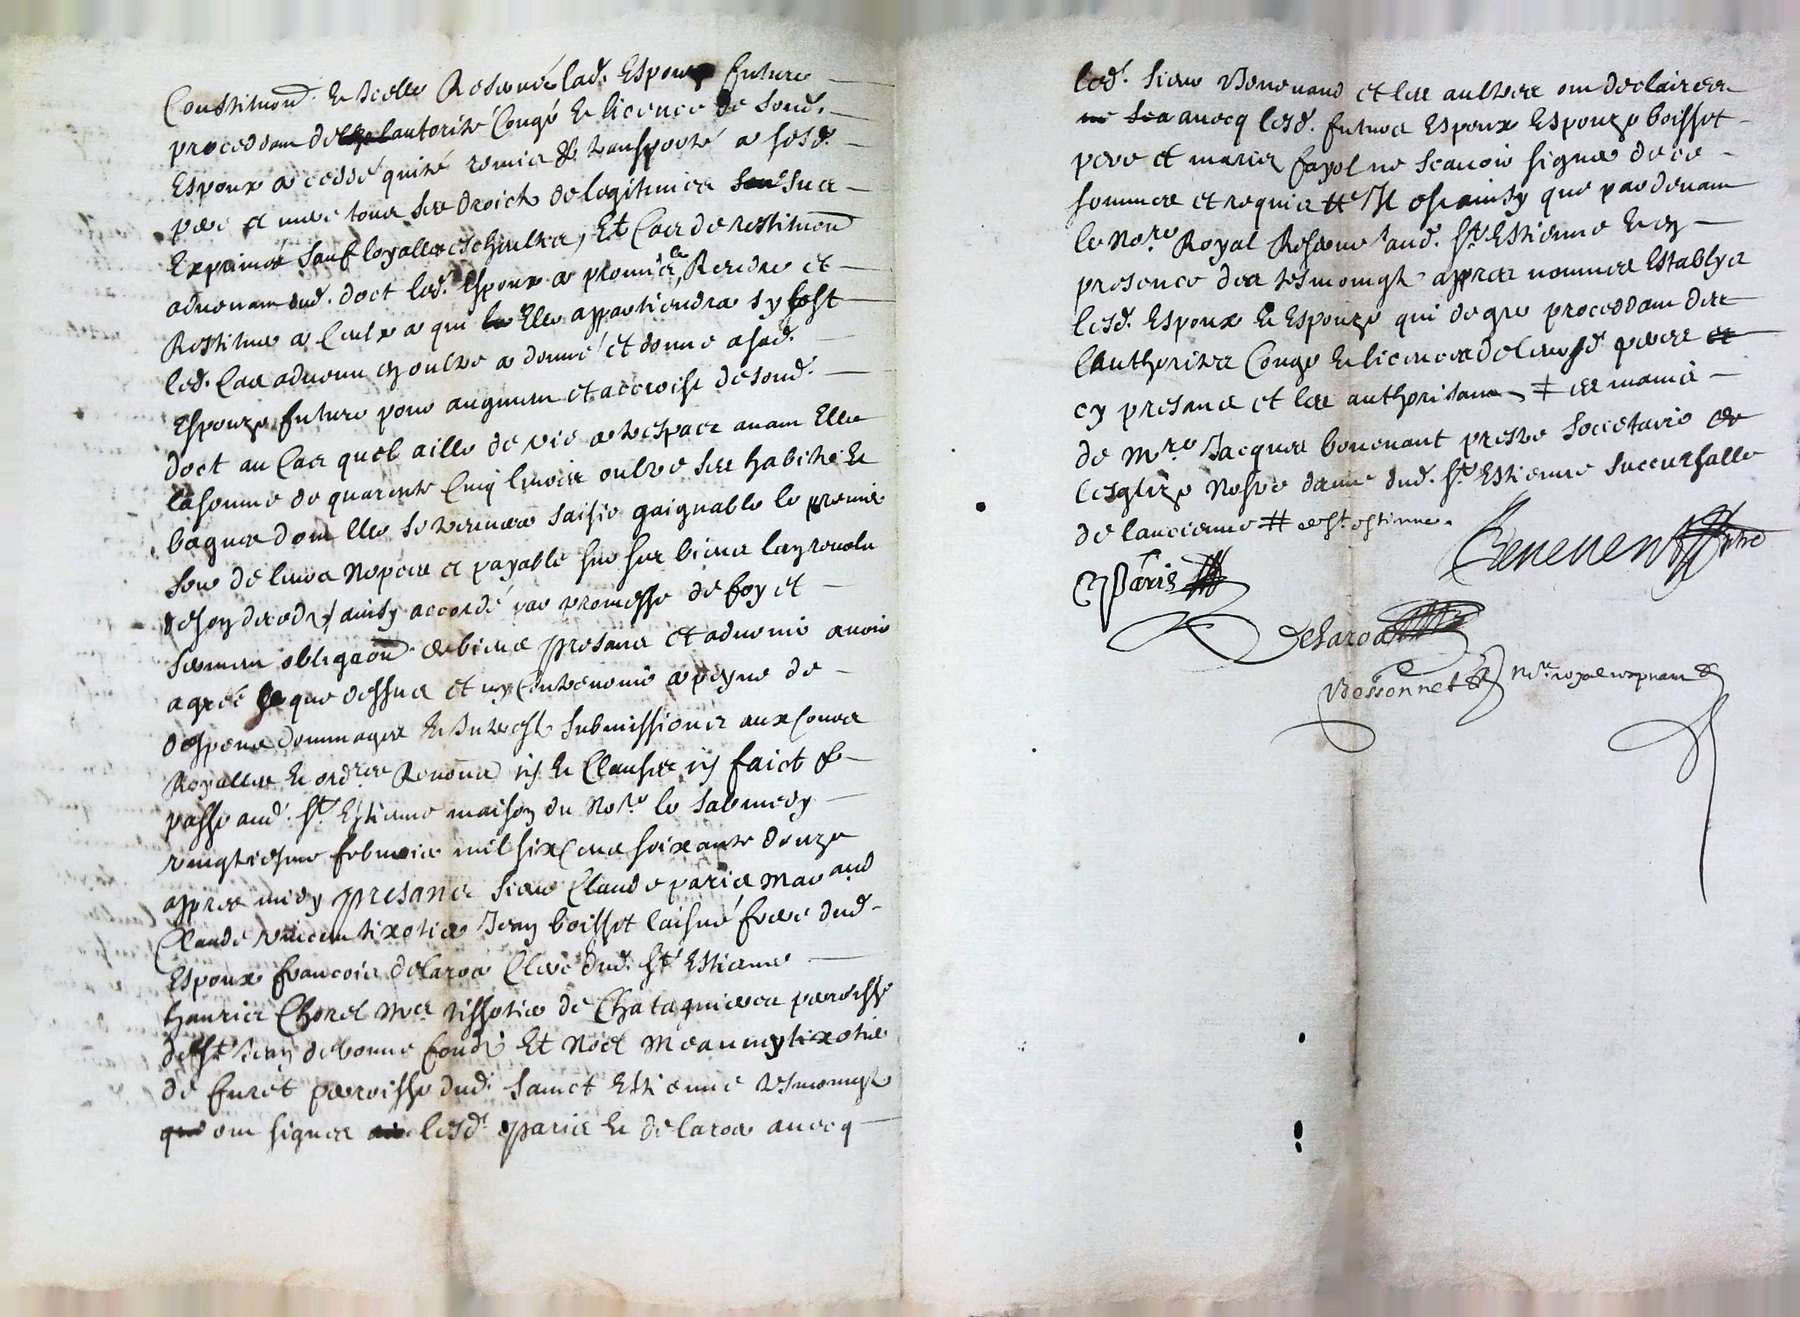 Constitution Et Icelle Reserué lad. Espouze future
proceddant de lautorité Congé Et licence de sond.
Espoux a cedé quité remis & transporté a sesd.
pere et mere tous ses droictz de legitimes sur ses
Exprimés sauf loyalles escheultes, Et Cas de restitution
aduenant dud. doct led. Espoux a promis le Rendre et
Restituer a Ceulx a qui Elle appartiendra sy sest
led. Cas aduenu en oultre a donné et donne a sad.
Espouze future pour augment et accroist de sond.
doct au Cas quel aille de vie a trespace auant Elle
la somme de quarante Cinq liures oultre ses habitz Et
bagues dont Elle se treuuera saisie gaignable le premier
jour de
ainsy accordé par promesse de foy et
serment obligaon de biens presans et aduenir auoir
agreé que dessus et ny Contreuenir a peyne de
despens dommages Et Interest submissions aux Cours
Royalles Et ordres Renonce Et Clauses faict &
passé aud. St Estienne maison du Nore le sabmedy
vingtiesme feburier mil six Cens soixante douze
appres midy presans sieur Claude paris marand
Claude vincent tixotier Jean boisset laisné frere dud.
Espoux francois delaroa Clerc dud. St Estienne
hauries Chorel Mes tissotier de Chatagnieres paroisse
de St Jean de bonne fondz Et Noel tixotier
de furet paroisse dud. Sainct Estienne tesmoingz
ont signes lesd. paris Et de laroa auecq
led. sieur Beneuend et les aultres ont declaires
auecq lesd. futurs Espoux Espouze boisset
pere et maries fayol ne scauoir signer de ce
sommes et requis # Il est ainsy que par deuant
le Nore Royal Reserué aud. St Estienne Et en
presence des tesmoingz appres nommes Establys
lesd. Espoux Et Espouze qui de gre proceddant des
lauthorites Conge Et licences de leursd peres
cy presans et les authorisant # et mariés
de Mre Jacques beneuant prestre societaire de
lesglize Nostre dame dud. St Estienne succursalle
de lancienne # de St estienne.
Beneuent pbre
C Pâris
Delaroa
Bessonnet Nre royal